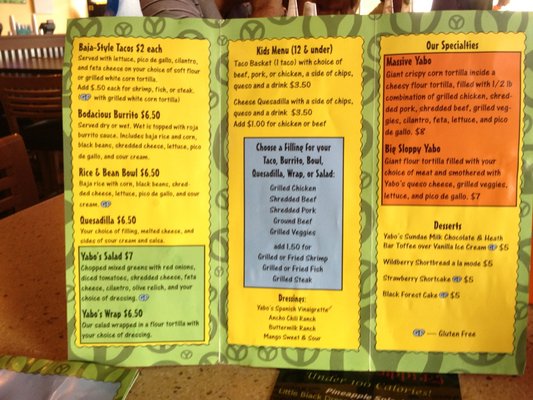 Baja-Style Tacos $2 each
Served with lettuce, pico de gallo, cilantro,
and feta cheese on your choice of soft flour
or grilled white corn tortilla.
Add $.50 each for shrimp, fish, or steak.
(GF with grilled white corn tortilla)
Bodacious Burrito $6.50
Served dry or wet. Wet is topped with roja
burrito sauce. Includes baja rice and corn,
black beans, shredded cheese, lettuce, pico
de gallo, and sour cream.
Rice & Bean Bowl $6.50
Baja rice with corn, black beans, shred-
ded cheese, lettuce, pico de gallo, and sour
cream. GF
Quesadilla $6.50
Your choice of filling, melted cheese, and
sides of sour cream and salsa.
Yabo's Salad $7
Chopped mixed greens with red onions,
diced tomatoes, shredded cheese, feta
cheese, cilantro, olive relish, and your
choice of dressing. GF
Yabo's Wrap $6.50
Our salad wrapped in a flour tortilla with
your choice of dressing.
Kids Menu (12 & under)
Taco Basket (1 taco) with choice of
beef, pork, or chicken, a side of chips,
queso and a drink $3.50
Cheese Quesadilla with a side of chips,
queso and a drink $3.50
Add $1.00 for chicken or beef
Choose a Filling for your
Taco, Burrito, Bowl,
Quesadilla, Wrap, or Salad:
Grilled Chicken
Shredded Beef
Shredded Pork
Ground Beef
Grilled Veggies
add 1.50 for
Grilled or Fried Shrimp
Grilled or Fried Fish
Grilled Steak
Dressings:
Yabo's Spanish Vinaigrette
Ancho Chili Ranch
Buttermilk Ranch
Mango Sweet & Sour
Our Specialties
Massive Yabo
Giant crispy corn tortilla inside a
cheesy flour tortilla, filled with 1/2 lb
combination of grilled chicken, shred-
ded pork, shredded beef, grilled veg-
gies, cilantro, feta, lettuce, and pico
de gallo. $8
Big Sloppy Yabo
Giant flour tortilla filled with your
choice of meat and smothered with
Yabo's queso cheese, grilled veggies,
lettuce, and pico de gallo. $7
Desserts
Yabo's Sundae Milk Chocolate & Heath
Bar Toffee over Vanilla Ice Cream GF $5
Wildberry Shortbread a la mode $5
Strawberry Shortcake GF $5
Black Forest Cake GF $5
GF — Gluten Free
Under 100 Calories!
Little Black Dress
Pineapple